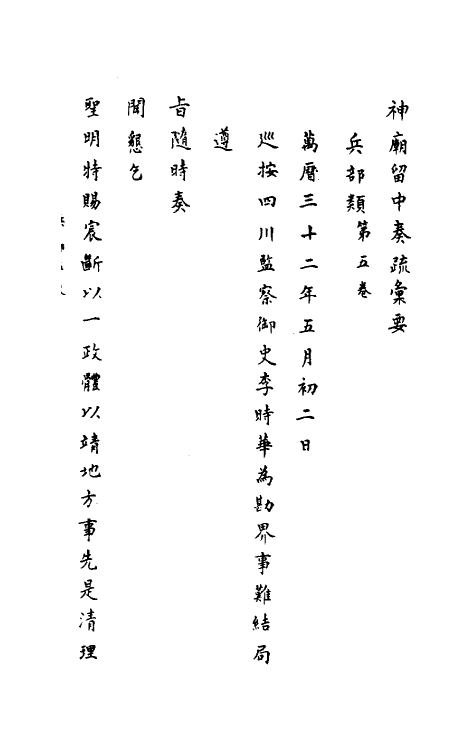 神廟留中奏疏彙要
兵部類第五卷
萬曆三十二年五月初二日
巡按四川監察御史李時華為勘界事難結局
遵
旨隨時奏
聞懇乞
聖明特賜宸斷以一政體以靖地方事先是清理